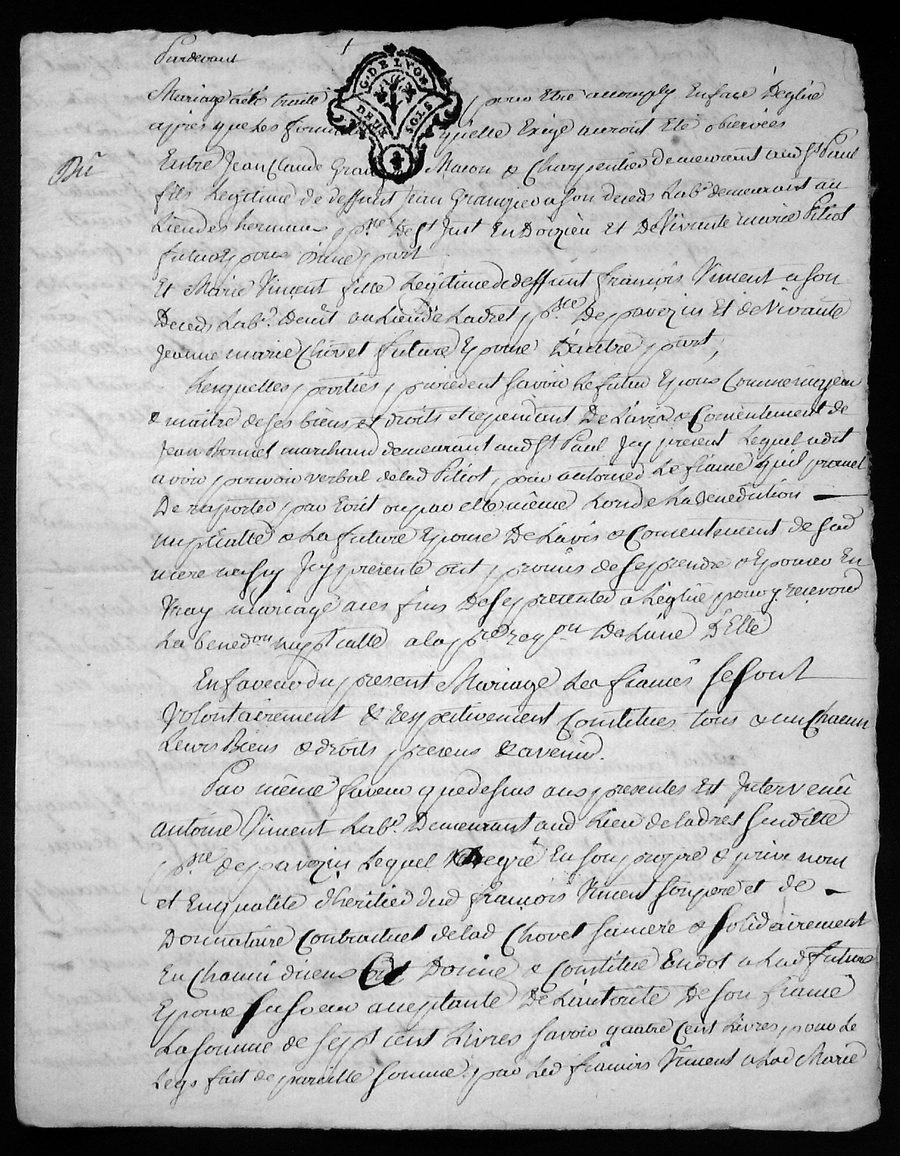 Pardevant
G. DE LYON
DEUX SOLS
Mariage a été traité pour Etre accomply Enface D'eglise
apres que les formali quelle Exige auront Eté observées
Dt
Entre Jean Claude Gran Macon & Charpentier demeurant aud St Paul
fils Legitime de deffunt Jean Grangier a son deceds Labr. demeurant au
Lieu des hermaux pse De St Just En Doizieu Et De vivante marie Piliot
futur Epoux d'une part
Et Marie Vincent fille Legitime de deffunt françois Vincent a son
Deceds Labr. Demt au Lieu de Ladret psse De pavezin Et de Vivante
Jeanne marie Chovet future Epouse D'autre part,
Lesquelles parties, procedent savoir Le futur Epoux Comme
& maitre de ses biens et droits et cependant De L'avis & Consentement de
Jean Bonnet marchand demeurant aud St Paul Icy present Lequel a dit
avoir pouvoir verbal de lad Piliot, pour autoriser Le fiancé quil promet
De raporter par Ecrit ou par elle même Lors de La Benediction
nuptialle & La future Epouse De L'avis & Consentement de sad
mere Icy presente ont promis de se prendre & Epouser En
Vray mariage aux fins De se presenter a L'eglise pour y recevoir
La benedon nuptialle a la pre reqon De L'une D'Elle
En faveur du present Mariage Les fiancés se sont
Volontairement & respectivement Constitués tous & un Chacun
Leurs Biens & droits presens & avenir
Par même faveur que dessus aux presentes Est Intervenu
antoine Vincent Labr. Demeurant aud Lieu de ladret susditte
pse de pavezin Lequel En son propre & privé nom
et En qualité d'heritier dud françois Vincent son pere et de
Donnataire Contractuel de lad Chovet sa mere & solidairement
En Chacun diceux a Donné & Constitué En dot a Lad future
Epouse sa soeur acceptante De L'autorité De son fiancé
La somme de sept cent Livres savoir quatre Cent Livres pour Le
Legs fait de pareille somme par Led françois Vincent a Lad Marie